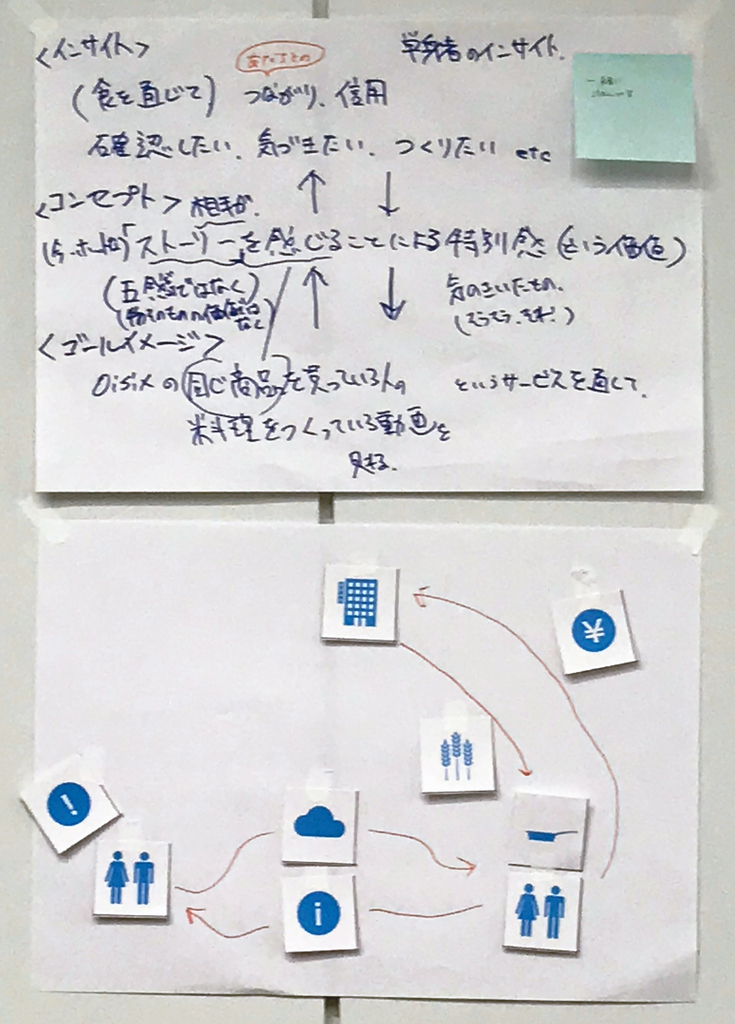 <インサイト>
単身者のインサイト.
(食を通じて) つながり、信用
確認したい、気づきたい、つくりたい etc
<コンセプト> 相手が、
「ストーリーを感じることによる特別感 (という価値)
(五感ではなく)
気のきいたもの、
<ゴールイメージ>
Oisixの同じ商品を買っている人の というサービスを通して、
料理をつくっている動画を
見れる.
¥
!
i